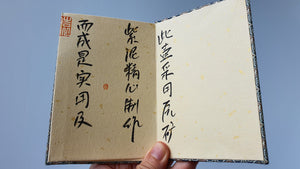 此壶采用原矿
紫泥精心制作
而成是实用及